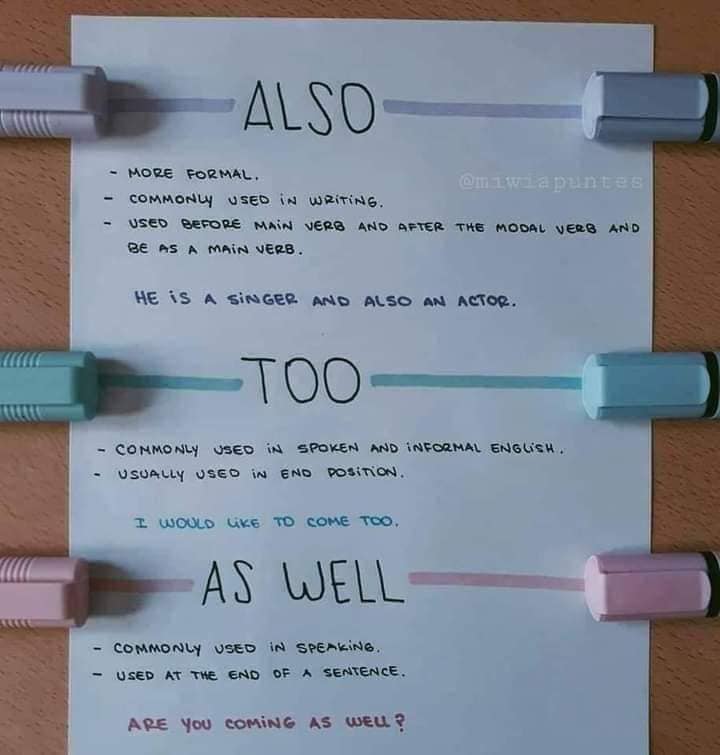 ALSO
- MORE FORMAL.
@miwiapuntes
- COMMONLY USED IN WRITING.
- USED BEFORE MAIN VERB AND AFTER THE MODAL VERB AND
BE AS A MAIN VERB.
HE IS A SINGER AND ALSO AN ACTOR.
TOO
- COMMONLY USED IN SPOKEN AND INFORMAL ENGLISH.
- USUALLY USED IN END POSITION.
I WOULD LIKE TO COME TOO.
AS WELL
- COMMONLY USED IN SPEAKING.
- USED AT THE END OF A SENTENCE.
ARE YOU COMING AS WELL?